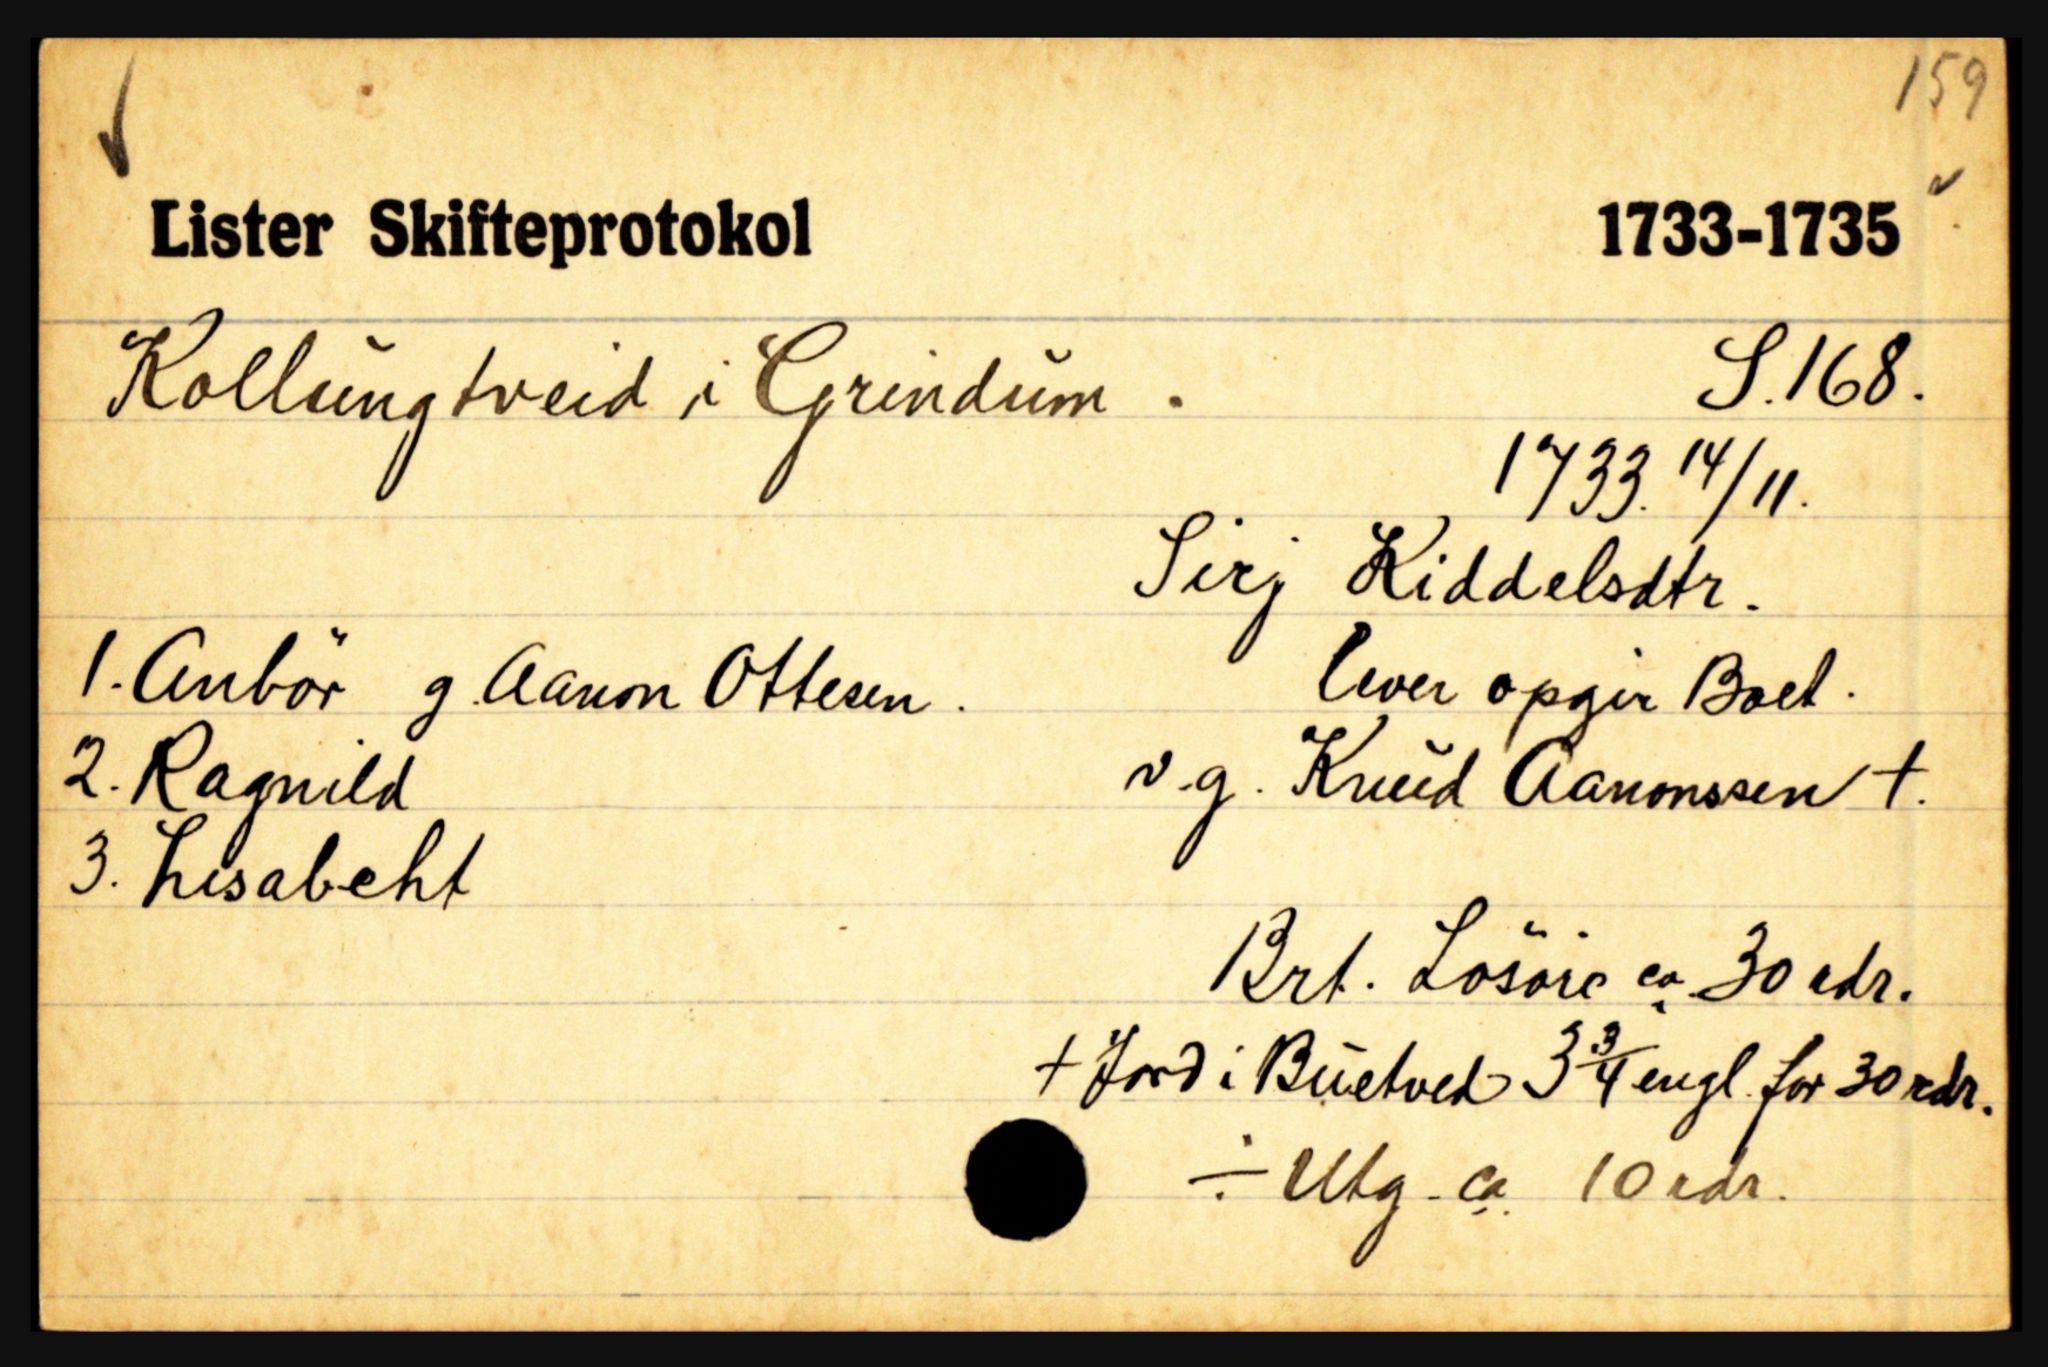 159
Lister Skifteprotokol 1733-1735
Kollungtveid i Grindum . S. 168.
1733. 14/11.
Sirj Kiddelsdtr.
1. Anbör g. Aanon Ottesen . lever opgir Boet .
2. Ragnild v. g. Knud Aanonssen †.
3. Lisabeht
Brt. Losöre ca. 30 rdr.
+ Jord i Buetved 3 3/4 engl. for 30 rdr.
÷ Utg. ca. 10 rdr.